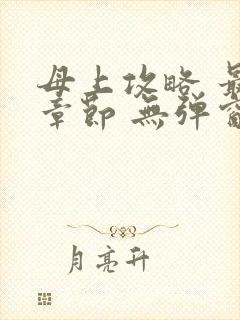 母上攻略 最
章節 無彈窗
月亮升